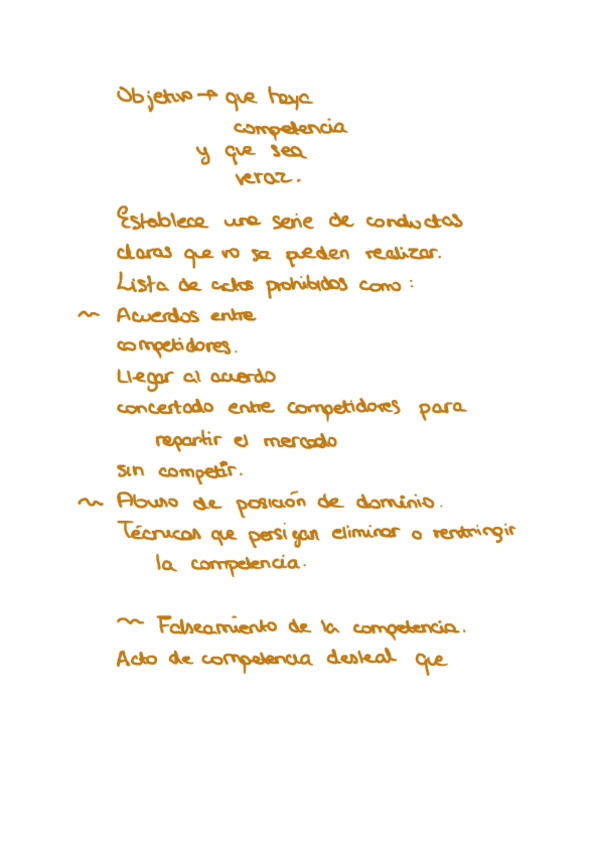 Objetivo → que haya
competencia
y que sea
veraz.
Establece una serie de conductas
claras que no se pueden realizar.
Lista de actos prohibidos como :
~ Acuerdos entre
competidores.
Llegar al acuerdo
concertado entre competidores para
repartir el mercado
sin competir.
~ Abuso de posición de dominio.
Técnicas que persigan eliminar o restringir
la competencia.
~ Falseamiento de la competencia.
Acto de competencia desleal que